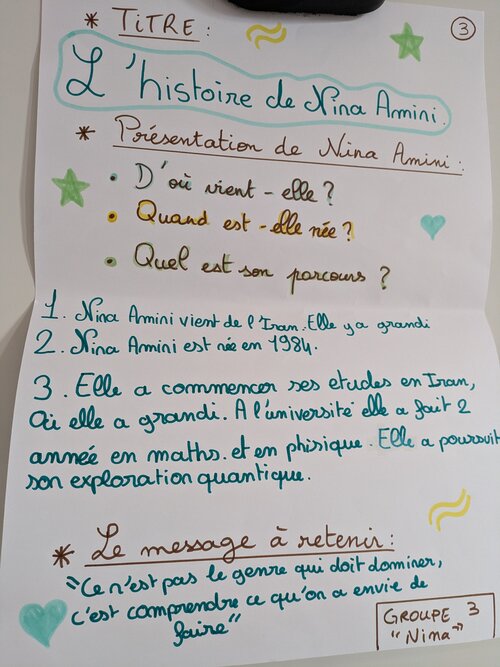 * TITRE :
3
L'histoire de Nina Amini.
* Présentation de Nina Amini :
• D'où vient-elle ?
• Quand est-elle née ?
• Quel est son parcours ?
1. Nina Amini vient de l'Iran. Elle y a grandi
2. Nina Amini est née en 1984.
3. Elle a commencer ses etudes en Iran,
Où elle a grandi. A l'université elle a fait 2
année en maths. et en phisique. Elle a poursuit
son exploration quantique.
* Le message à retenir :
"Ce n'est pas le genre qui doit dominer,
c'est comprendre ce qu'on a envie de
faire"
GROUPE 3
"Nina"